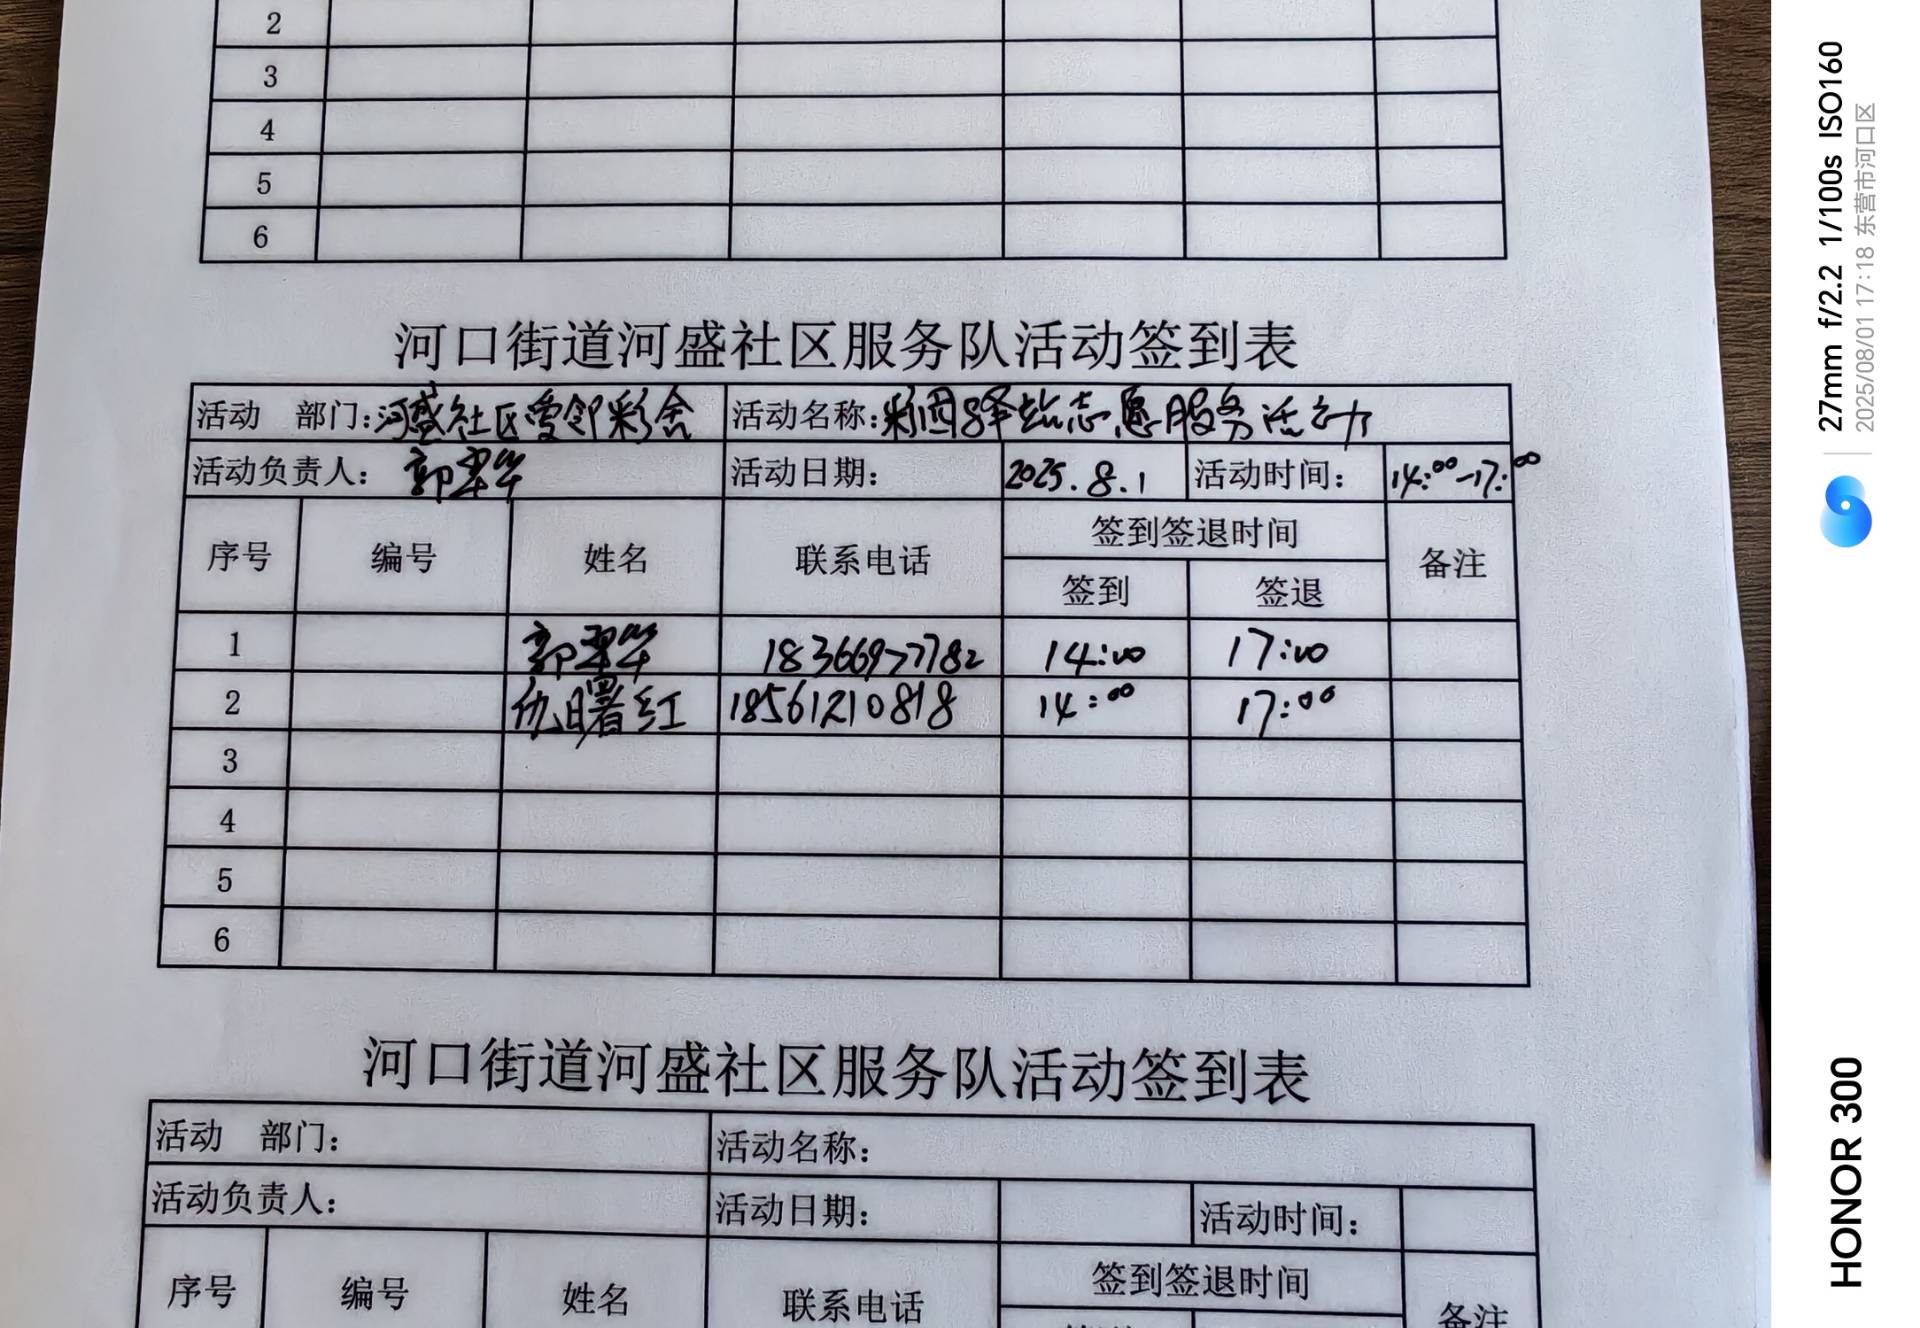 2
3
4
5
6
河口街道河盛社区服务队活动签到表
活动 部门:河盛社区爱邻彩舍 活动名称:彩园驿站志愿服务活动
活动负责人: 郭翠华 活动日期: 2025.8.1 活动时间: 14:00-17:00
序号 编号 姓名 联系电话 签到签退时间 备注
签到 签退
1 郭翠华 18366977782 14:00 17:00
2 仇曙红 18561210818 14:00 17:00
3
4
5
6
河口街道河盛社区服务队活动签到表
活动 部门: 活动名称:
活动负责人: 活动日期: 活动时间:
序号 编号 姓名 联系电话 签到签退时间 备注
27mm f/2.2 1/100s ISO160
2025/08/01 17:18 东营市河口区
HONOR 300